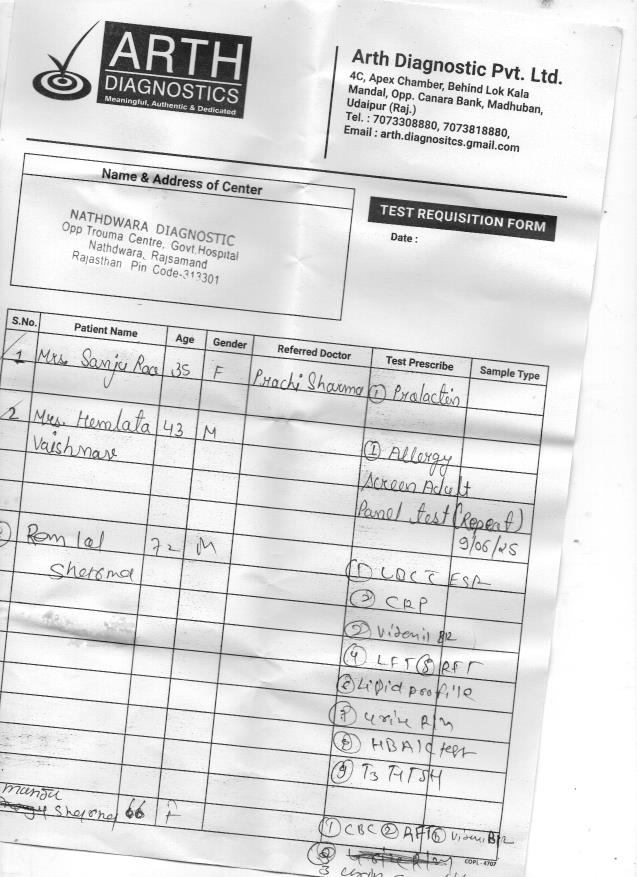 ARTH
DIAGNOSTICS
Meaningful, Authentic & Dedicated
Arth Diagnostic Pvt. Ltd.
4C, Apex Chamber, Behind Lok Kala
Mandal, Opp. Canara Bank, Madhuban,
Udaipur (Raj.)
Tel. : 7073308880, 7073818880,
Email : arth.diagnositcs.gmail.com
Name & Address of Center
NATHDWARA DIAGNOSTIC
Opp Trouma Centre, Govt.Hospital
Nathdwara, Rajsamand
Rajasthan Pin Code-313301
TEST REQUISITION FORM
Date :
S.No. Patient Name Age Gender Referred Doctor Test Prescribe Sample Type
1 Mrs. Sanju 35 F Prachi Sharma ① Prolactin
2 Mrs. Hemlata 43 M
Vaishnav ① Allergy
Screen Adult
Panel test (Repeat)
9/06/25
Ram lal 72 M
Sharma ① ESR
CRP
LFT RFT
Lipid profile
⑦ Urine
⑧ HBA1C test
⑨ T3 T4 TSH
Sharma 66 F
① CBC ②
COPL - 4707
3